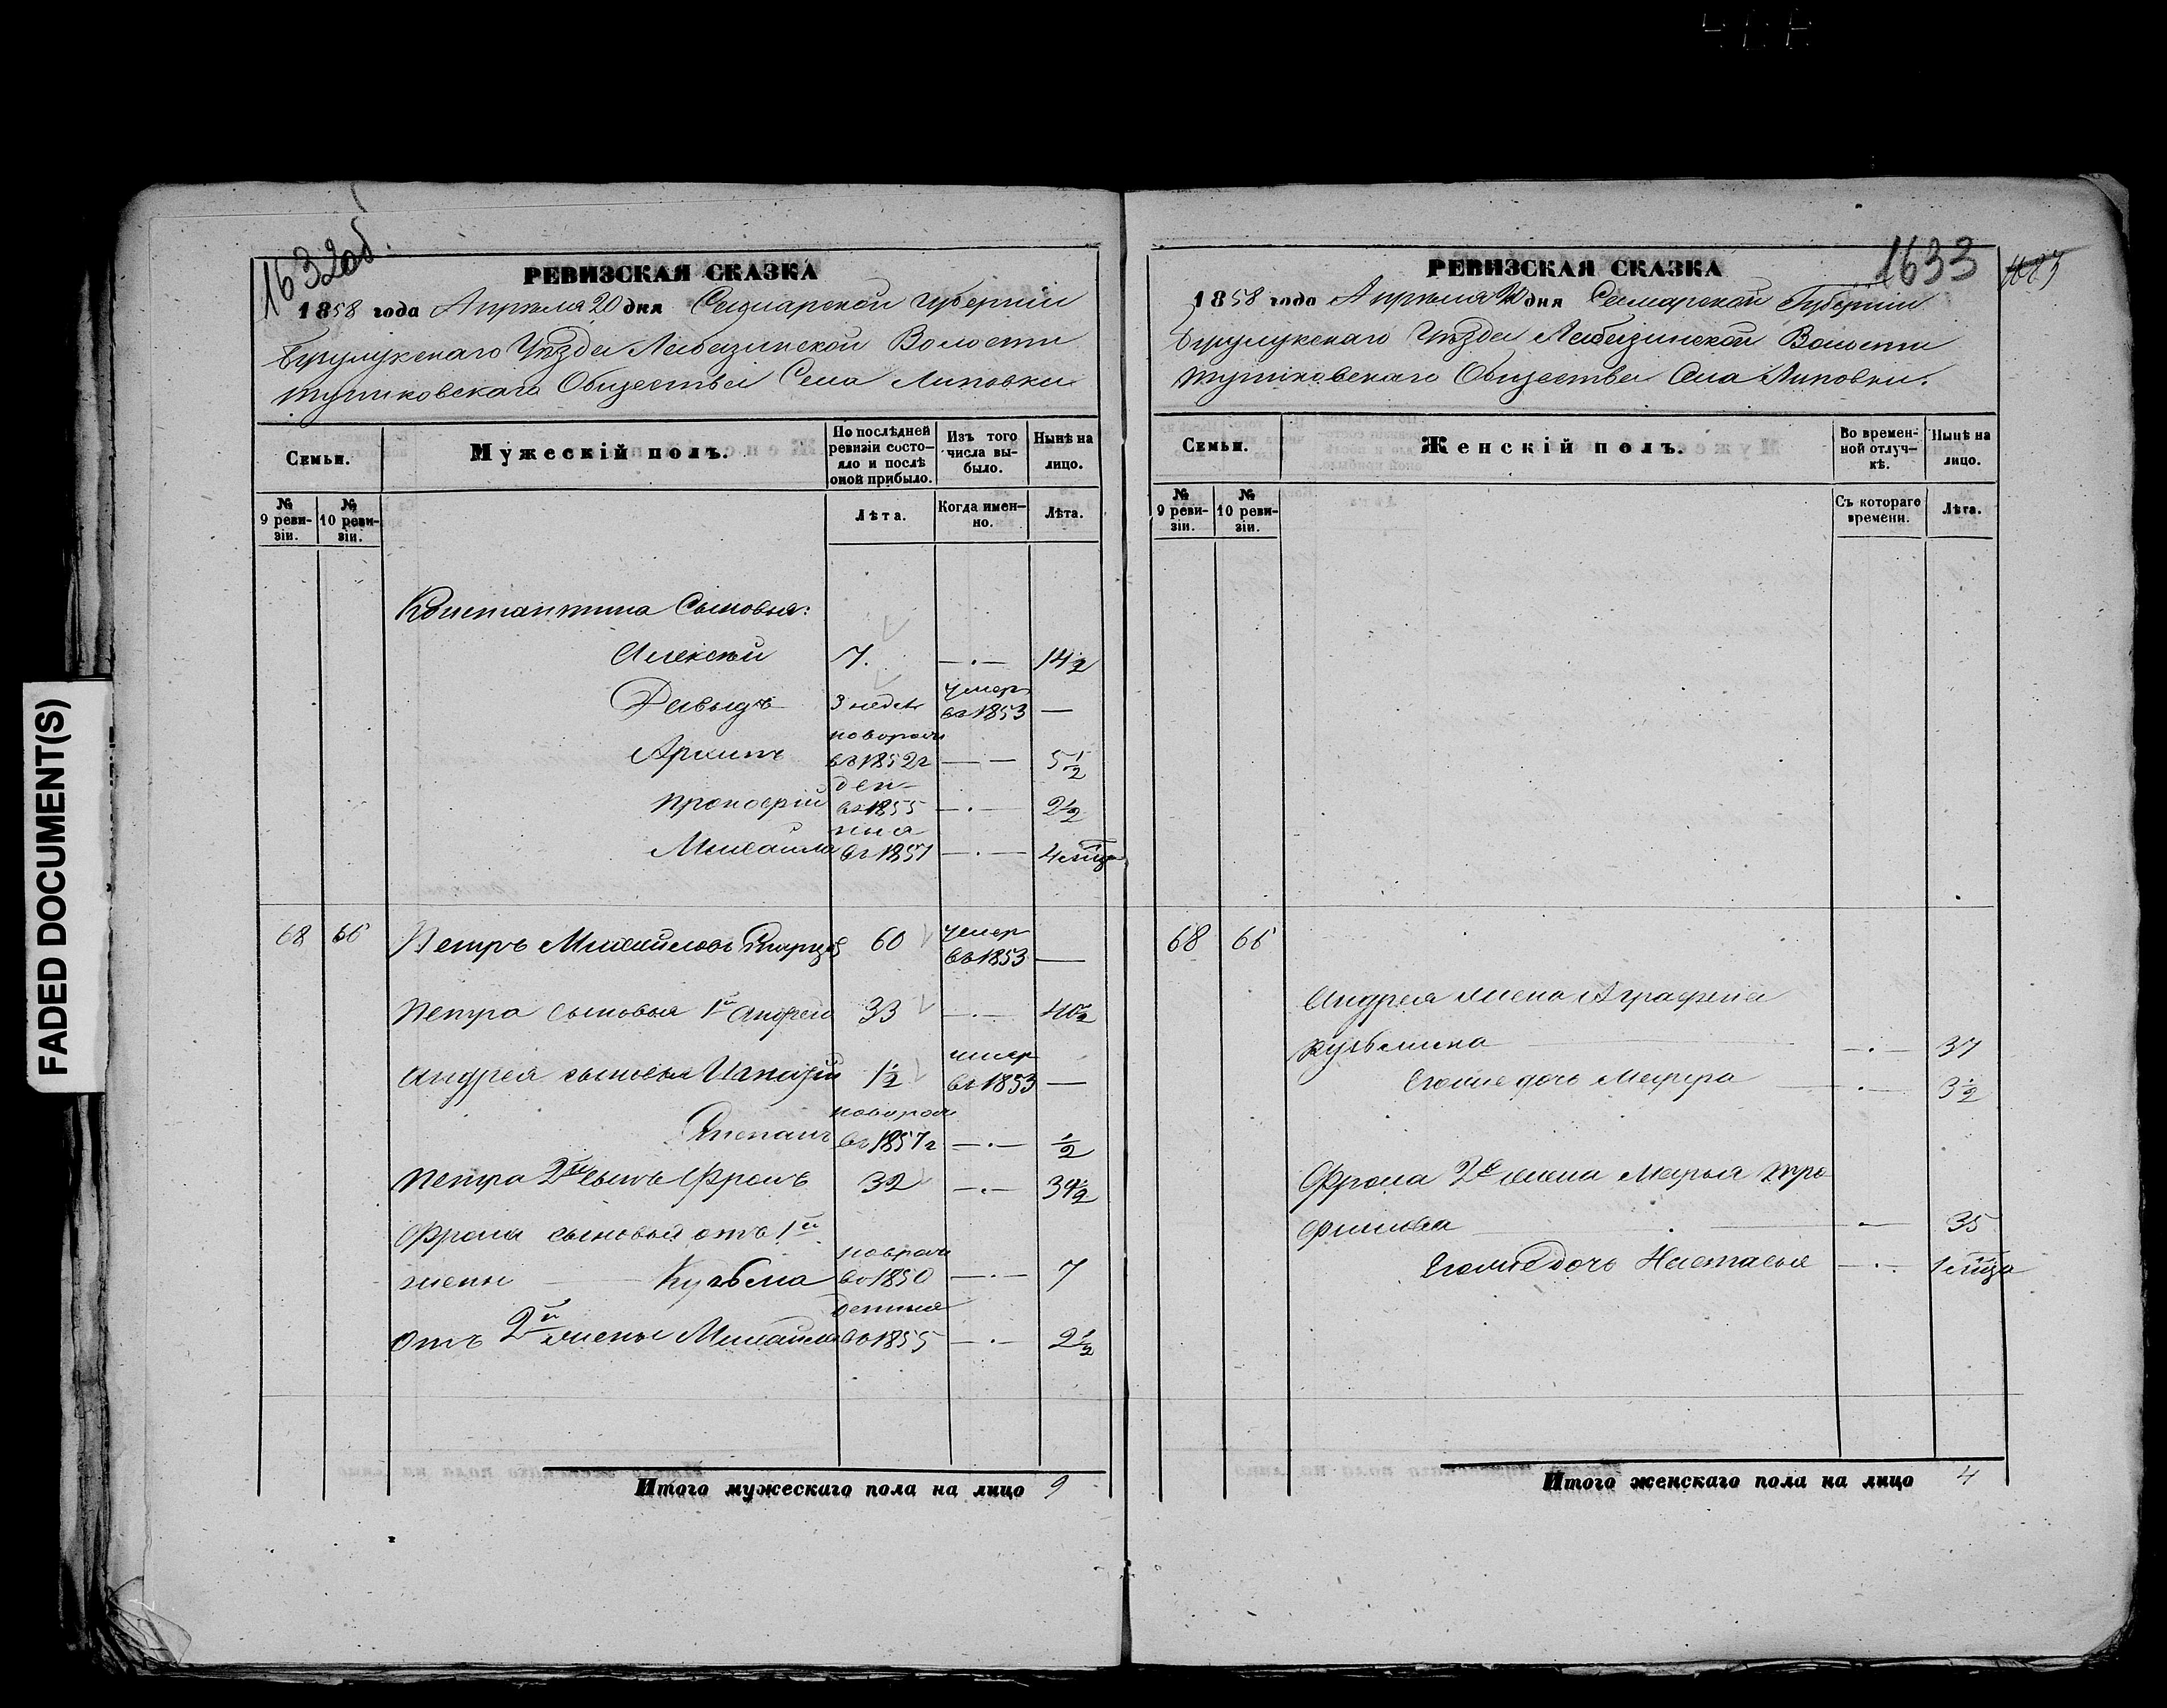 FADED DOCUMENT(S)
1632об.
РЕВИЗСКАЯ СКАЗКА
1858 года Апрѣля 20 дня Самарской Губерніи
Бузулукскаго Уѣзда Лабазинской Волости
Общества Села Липовки
Семьи.
Мужескій полъ.
По послѣдней ревизіи состояло и послѣ оной прибыло.
Изъ того числа выбыло.
Нынѣ на лицо.
№ 9 ревизіи.
№ 10 ревизіи.
Лѣта.
Когда именно.
Лѣта.
Константина Сыновья:
Алексѣй 7. —·— 14½
Давыдъ 3 недел умеръ въ 1853 —
Архипъ новорож въ 1852г —·— 5½
Прокофій ден въ 1855 —·— 2½
Михайла ныя въ 1857 —·— 4 мѣсяца
68 66 Петръ Михайловъ 60 умеръ въ 1853 —
Петра сыновья 1й Андрей 33 —·— 40½
Андрея сыновья 1½ умер въ 1853 —
Степанъ новорож въ 1857г —·— ½
Петра 2й сынъ Фролъ 32 —·— 39½
Фрола сыновья отъ 1й
жены Кузьма новорож въ 1850 —·— 7
отъ 2й жены Михайла денныя въ 1855 —·— 2½
Итого мужескаго пола на лицо 9
1633
РЕВИЗСКАЯ СКАЗКА
1858 года Апрѣля 20 дня Самарской Губерніи
Бузулукскаго Уѣзда Лабазинской Волости
Общества Села Липовки.
Семьи.
Женскій полъ.
Во временной отлучкѣ.
Нынѣ на лицо.
№ 9 ревизіи.
№ 10 ревизіи.
Съ котораго времени.
Лѣта.
68 66
Андрея жена Аграфена
Кузьмина —·— 37
его же дочь Марфа —·— 3½
Фрола 2я жена Марья Тро
фимова — 35
его же дочь Настасья —·— 1 мѣсяца
Итого женскаго пола на лицо 4